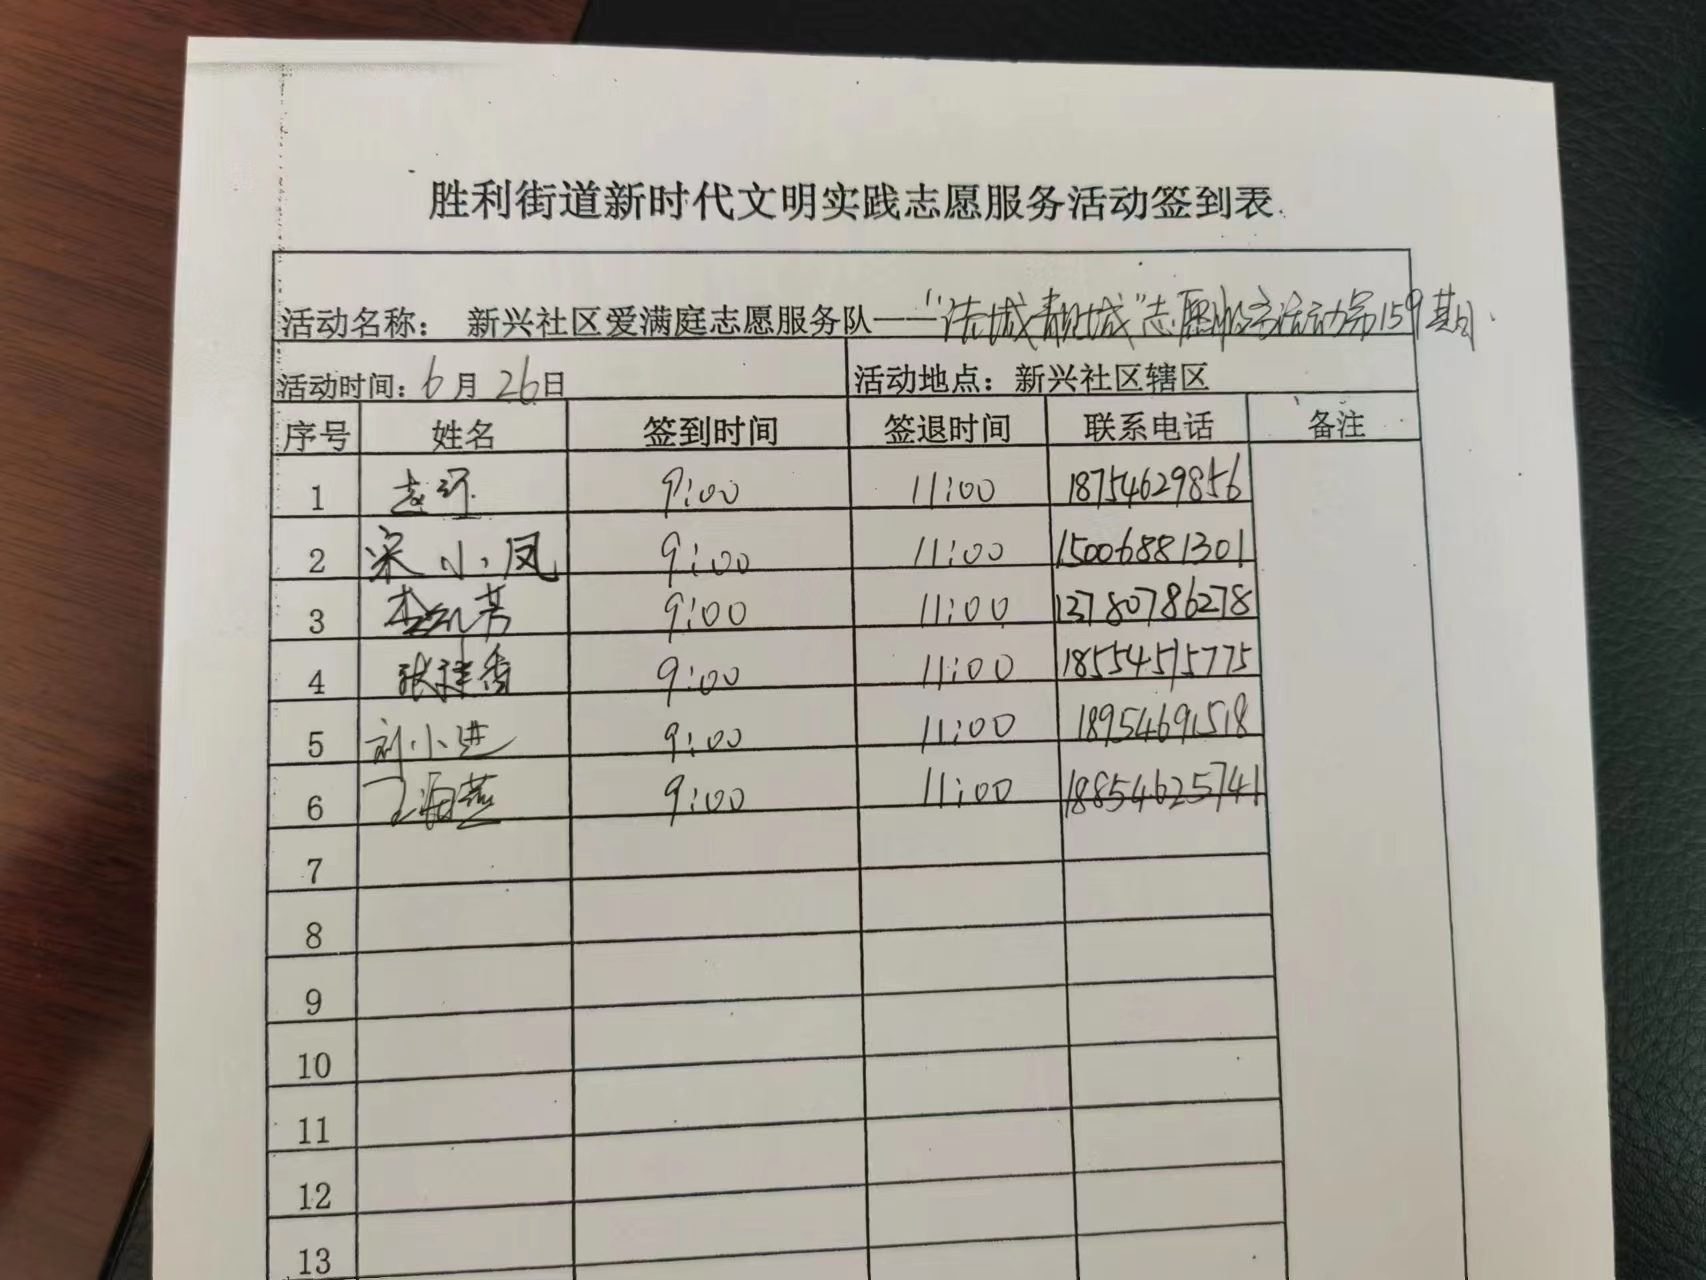 胜利街道新时代文明实践志愿服务活动签到表
活动名称： 新兴社区爱满庭志愿服务队——“洁城靓城”志愿服务活动第159期
活动时间：6月26日 活动地点：新兴社区辖区
序号 姓名 签到时间 签退时间 联系电话 备注
1 9:00 11:00 18754629856
2 宋小凤 9:00 11:00 15006881301
3 9:00 11:00 13780786278
4 9:00 11:00 18554515775
5 刘小进 9:00 11:00 18954691518
6 海燕 9:00 11:00 18854625741
7
8
9
10
11
12
13